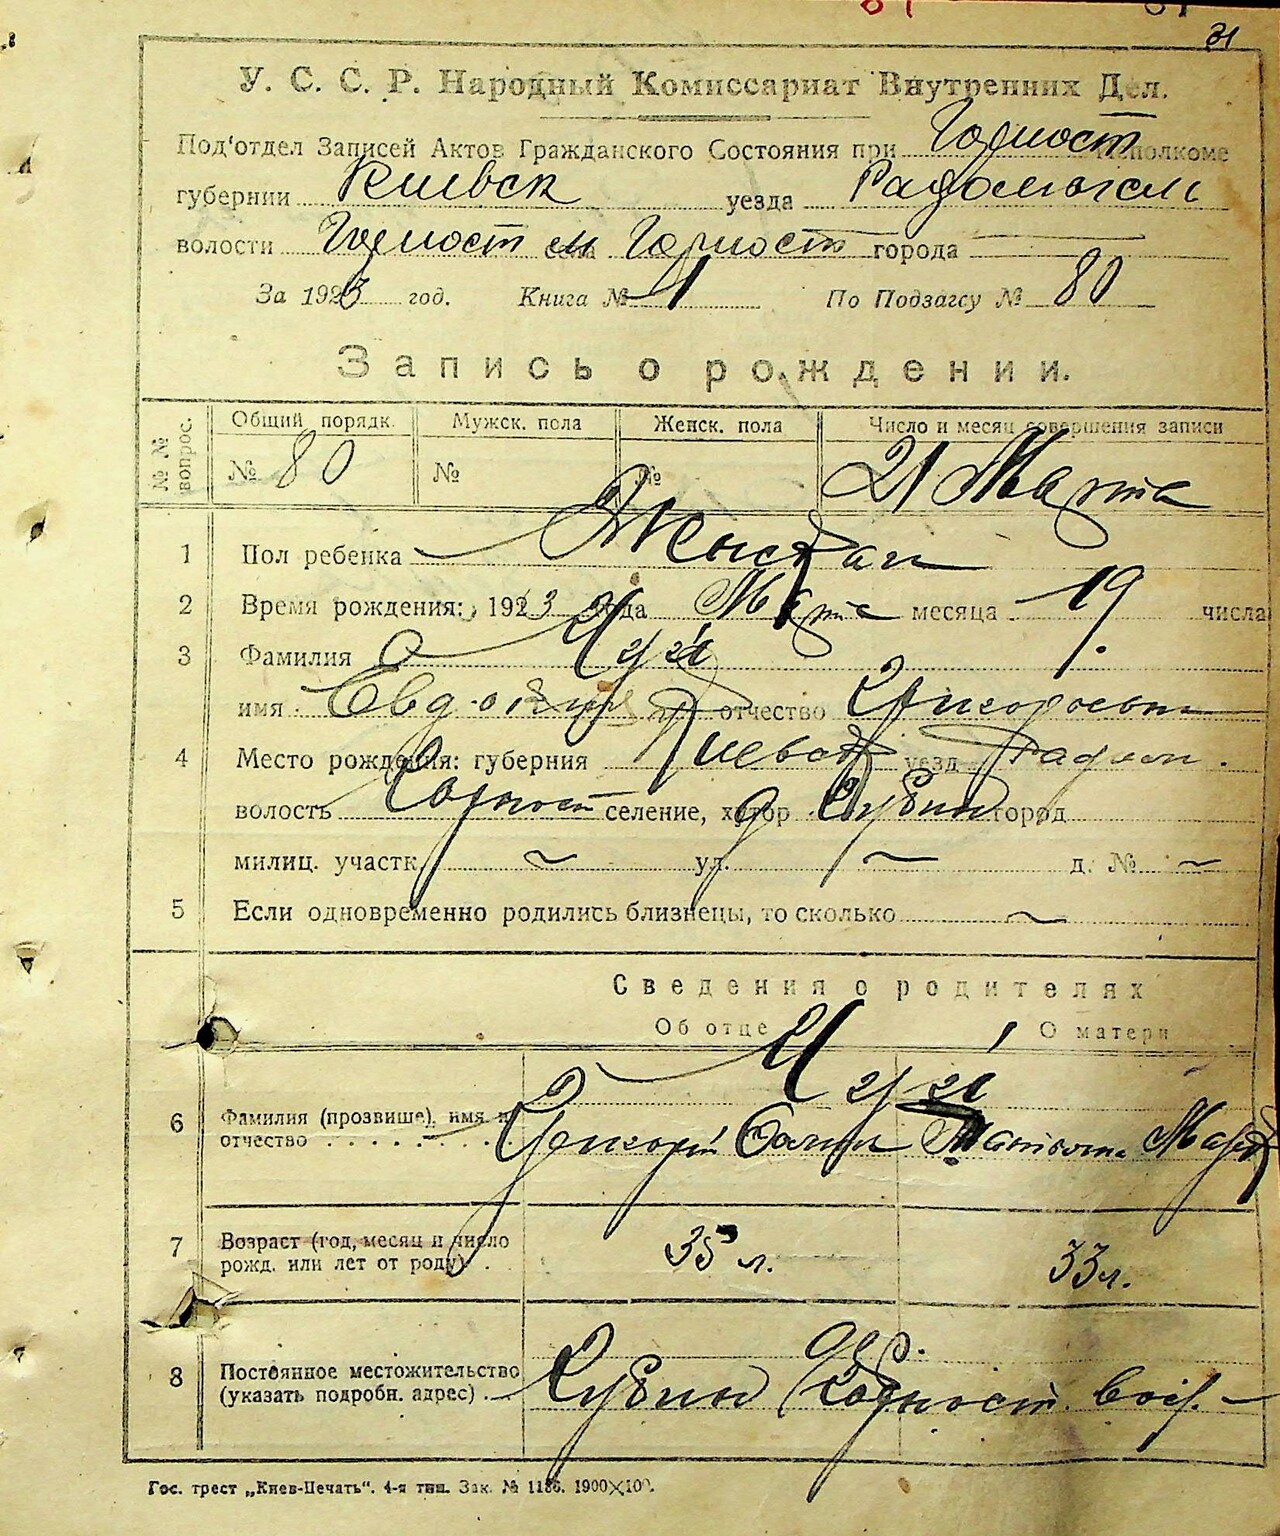 31
У. С. С. Р. Народный Комиссариат Внутренних Дел.
Под'отдел Записей Актов Гражданского Состояния при Горност Исполкоме
губернии Киевск уезда Радомысль
волости Горност м села Горност города
За 1923 год. Книга № 1 По Подзагсу № 80
Запись о рождении.
№№ вопрос.
Общий порядк. Мужск. пола Женск. пола Число и месяц совершения записи
№ 80 № № 21 Марта
1 Пол ребенка Женский
2 Время рождения: 1923 года Марта месяца 19 числа
3 Фамилия
имя отчество Григорьевна
4 Место рождения: губерния Киевск уезд Радом.
волость Горност селение, хутор город
милиц. участк. ~ ул. ~ д. № ~
5 Если одновременно родились близнецы, то сколько ~
Сведения о родителях
Об отце О матери
6 Фамилия (прозвише), имя и
отчество . . . . . . . Григорий Татьяна
7 Возраст (год, месяц и число
рожд. или лет от роду) . . 35 л. 33 л.
дер.
8 Постоянное местожительство
(указать подробн. адрес) . Горност. вол.
Гос. трест „Киев-Печать“. 4-я тип. Зак. № 1186. 1900×100.